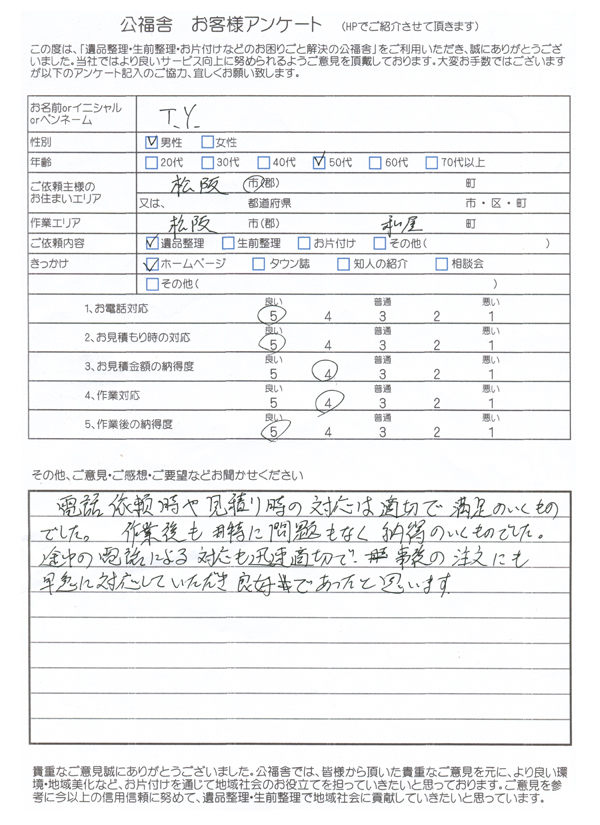 公福舎　お客様アンケート　（HPでご紹介させて頂きます）
この度は、「遺品整理・生前整理・お片付けなどのお困りごと解決の公福舎」をご利用いただき、誠にありがとうござ
いました。当社ではより良いサービス向上に努められるようご意見を頂戴しております。大変お手数ではございます
が以下のアンケート記入のご協力、宜しくお願い致します。
お名前orイニシャル
orペンネーム　T.Y.
性別　☑男性　□女性
年齢　□20代　□30代　□40代　☑50代　□60代　□70代以上
ご依頼主様の　松阪　市（郡）　町
お住まいエリア　又は、　都道府県　市・区・町
作業エリア　松阪　市（郡）　町
ご依頼内容　☑遺品整理　□生前整理　□お片付け　□その他（　）
きっかけ　☑ホームページ　□タウン誌　□知人の紹介　□相談会
□その他（　）
良い　普通　悪い
1、お電話対応　5　4　3　2　1
良い　普通　悪い
2、お見積もり時の対応　5　4　3　2　1
良い　普通　悪い
3、お見積金額の納得度　5　4　3　2　1
良い　普通　悪い
4、作業対応　5　4　3　2　1
良い　普通　悪い
5、作業後の納得度　5　4　3　2　1
その他、ご意見・ご感想・ご要望などお聞かせください
電話依頼時や見積り時の対応は適切で満足のいくもの
でした。作業後も特に問題もなく納得のいくものでした。
途中の電話による対応も迅速適切で、事後の注文にも
早急に対応していただき良好であったと思います。
貴重なご意見誠にありがとうございました。公福舎では、皆様から頂いた貴重なご意見を元に、より良い環
境・地域美化など、お片付けを通じて地域社会のお役立てを担っていきたいと思っております。ご意見を参
考に今以上の信用信頼に努めて、遺品整理・生前整理で地域社会に貢献していきたいと思っています。